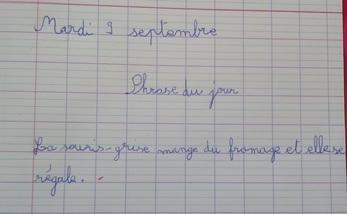 Mardi 9 septembre
Phrase du jour
La souris-grise mange du fromage et elle se
régale.